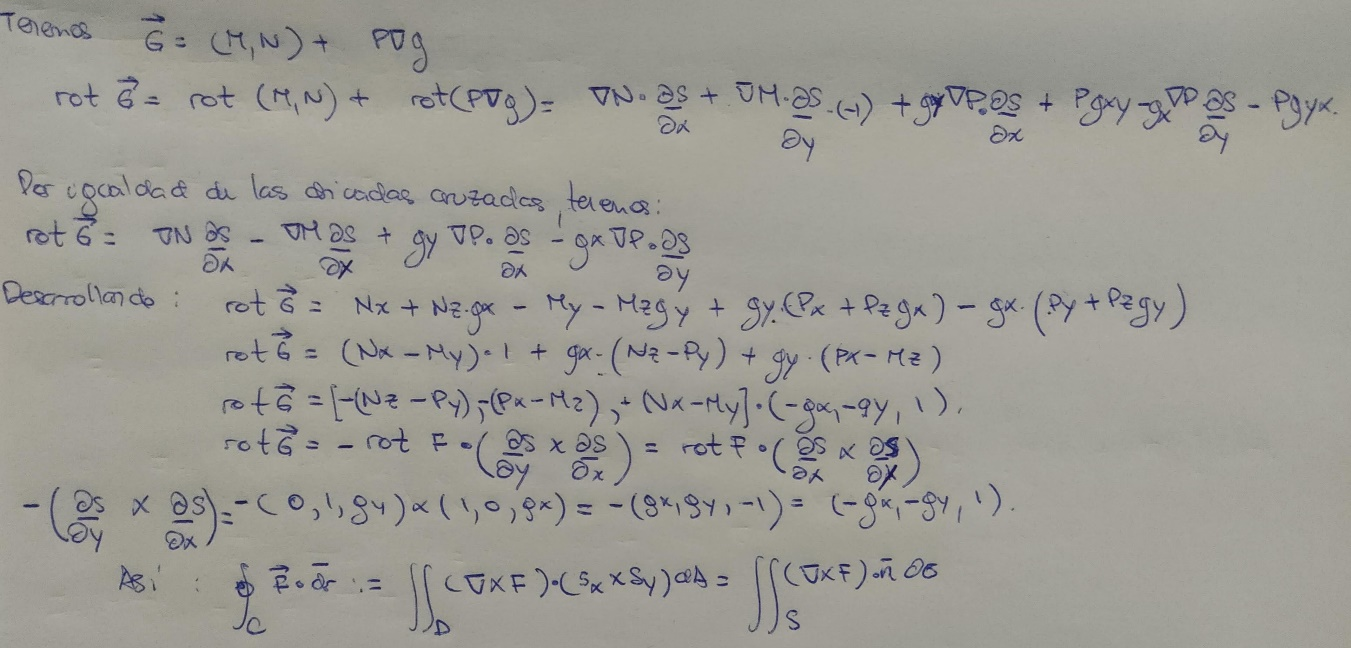 Tenemos G⃗ = (M,N) + P∇g
rot G⃗ = rot (M,N) + rot(P∇g) = ∇N·∂S/∂x + ∇M·∂S/∂y·(-1) + gy∇P·∂S/∂x + Pgxy - gx∇P ∂S/∂y - Pgyx.
Por igualdad de las dricadas cruzadas, tenemos:
rot G⃗ = ∇N ∂S/∂x - ∇M ∂S/∂y + gy ∇P·∂S/∂x - gx ∇P·∂S/∂y
Desarrollando: rot G⃗ = Nx + Nz·gx - My - Mzgy + gy·(Px + Pzgx) - gx·(Py + Pzgy)
rot G⃗ = (Nx - My)·1 + gx·(Nz - Py) + gy·(Px - Mz)
rot G⃗ = [-(Nz - Py), -(Px - Mz), + (Nx - My]·(-gx, -gy, 1).
rot G⃗ = - rot F·(∂S/∂y × ∂S/∂x) = rot F·(∂S/∂x × ∂S/∂y)
-(∂S/∂y × ∂S/∂x) = -(0,1,gy)×(1,0,gx) = -(gx,gy,-1) = (-gx,-gy,1).
Así: ∮C F⃗·dr̄ := ∬D (∇×F)·(Sx×Sy)dA = ∬S (∇×F)·n̄ ∂σ